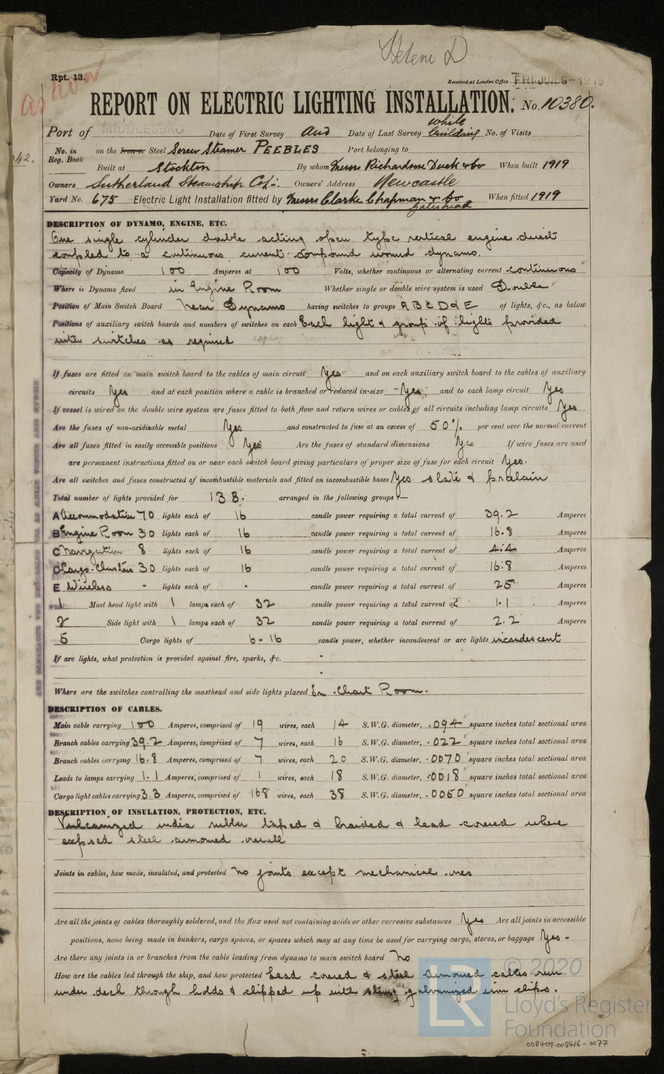 Helene D
Rpt. 13.
Received at London Office FRI. JU
REPORT ON ELECTRIC LIGHTING INSTALLATION. No. 10380.
Port of MIDDLESBRO Date of First Survey and Date of Last Survey while building No. of Visits
42.
No. in Reg. Book on the Iron or Steel Screw Steamer PEEBLES Port belonging to
Built at Stockton By whom Messrs Richardson Duck & Co When built 1919
Owners Sutherland Steamship Co Ld. Owners' Address Newcastle
Yard No. 675 Electric Light Installation fitted by Messrs Clarke Chapman & Co Gateshead When fitted 1919
DESCRIPTION OF DYNAMO, ENGINE, ETC.
One single cylinder double acting open type vertical engine direct
coupled to a continuous current compound wound dynamo.
Capacity of Dynamo 100 Amperes at 100 Volts, whether continuous or alternating current continuous
Where is Dynamo fixed in Engine Room Whether single or double wire system is used Double
Position of Main Switch Board near Dynamo having switches to groups A B C D & E of lights, &c., as below
Positions of auxiliary switch boards and numbers of switches on each Each light & group of lights provided
with switches as required
If fuses are fitted on main switch board to the cables of main circuit Yes and on each auxiliary switch board to the cables of auxiliary
circuits Yes and at each position where a cable is branched or reduced in size Yes and to each lamp circuit Yes
If vessel is wired on the double wire system are fuses fitted to both flow and return wires or cables of all circuits including lamp circuits Yes
Are the fuses of non-oxidizable metal Yes and constructed to fuse at an excess of 50% per cent over the normal current
Are all fuses fitted in easily accessible positions Yes Are the fuses of standard dimensions Yes If wire fuses are used
are permanent instructions fitted on or near each switch board giving particulars of proper size of fuse for each circuit Yes.
Are all switches and fuses constructed of incombustible materials and fitted on incombustible bases Yes slate & porcelain
Total number of lights provided for 138. arranged in the following groups:—
A Accommodation 70 lights each of 16 candle power requiring a total current of 39.2 Amperes
B Engine Room 30 lights each of 16 candle power requiring a total current of 16.8 Amperes
C Navigation 8 lights each of 16 candle power requiring a total current of 4.4 Amperes
D Cargo Clusters 30 lights each of 16 candle power requiring a total current of 16.8 Amperes
E Wireless - lights each of - candle power requiring a total current of 25 Amperes
1 Mast head light with 1 lamps each of 32 candle power requiring a total current of 1.1 Amperes
2 Side light with 1 lamps each of 32 candle power requiring a total current of 2.2 Amperes
5 Cargo lights of 6-16 candle power, whether incandescent or arc lights incandescent
If arc lights, what protection is provided against fire, sparks, &c. -
Where are the switches controlling the masthead and side lights placed In Chart Room.
DESCRIPTION OF CABLES.
Main cable carrying 100 Amperes, comprised of 19 wires, each 14 S.W.G. diameter, .094 square inches total sectional area
Branch cables carrying 39.2 Amperes, comprised of 7 wires, each 16 S.W.G. diameter, .022 square inches total sectional area
Branch cables carrying 16.8 Amperes, comprised of 7 wires, each 20 S.W.G. diameter, .0070 square inches total sectional area
Leads to lamps carrying 1.1 Amperes, comprised of 1 wires, each 18 S.W.G. diameter, .0018 square inches total sectional area
Cargo light cables carrying 3.3 Amperes, comprised of 168 wires, each 38 S.W.G. diameter, .0060 square inches total sectional area
DESCRIPTION OF INSULATION, PROTECTION, ETC.
Vulcanized india rubber taped & braided & lead covered where
exposed steel armoured overall
Joints in cables, how made, insulated, and protected no joints except mechanical ones
Are all the joints of cables thoroughly soldered, and the flux used not containing acids or other corrosive substances Yes Are all joints in accessible
positions, none being made in bunkers, cargo spaces, or spaces which may at any time be used for carrying cargo, stores, or baggage Yes -
Are there any joints in or branches from the cable leading from dynamo to main switch board No
How are the cables led through the ship, and how protected Lead covered & steel armoured cables run
under deck through holds & clipped up with strong galvanized iron clips.
© 2020
LR
Lloyd's Register
Foundation
008409-008416-0077